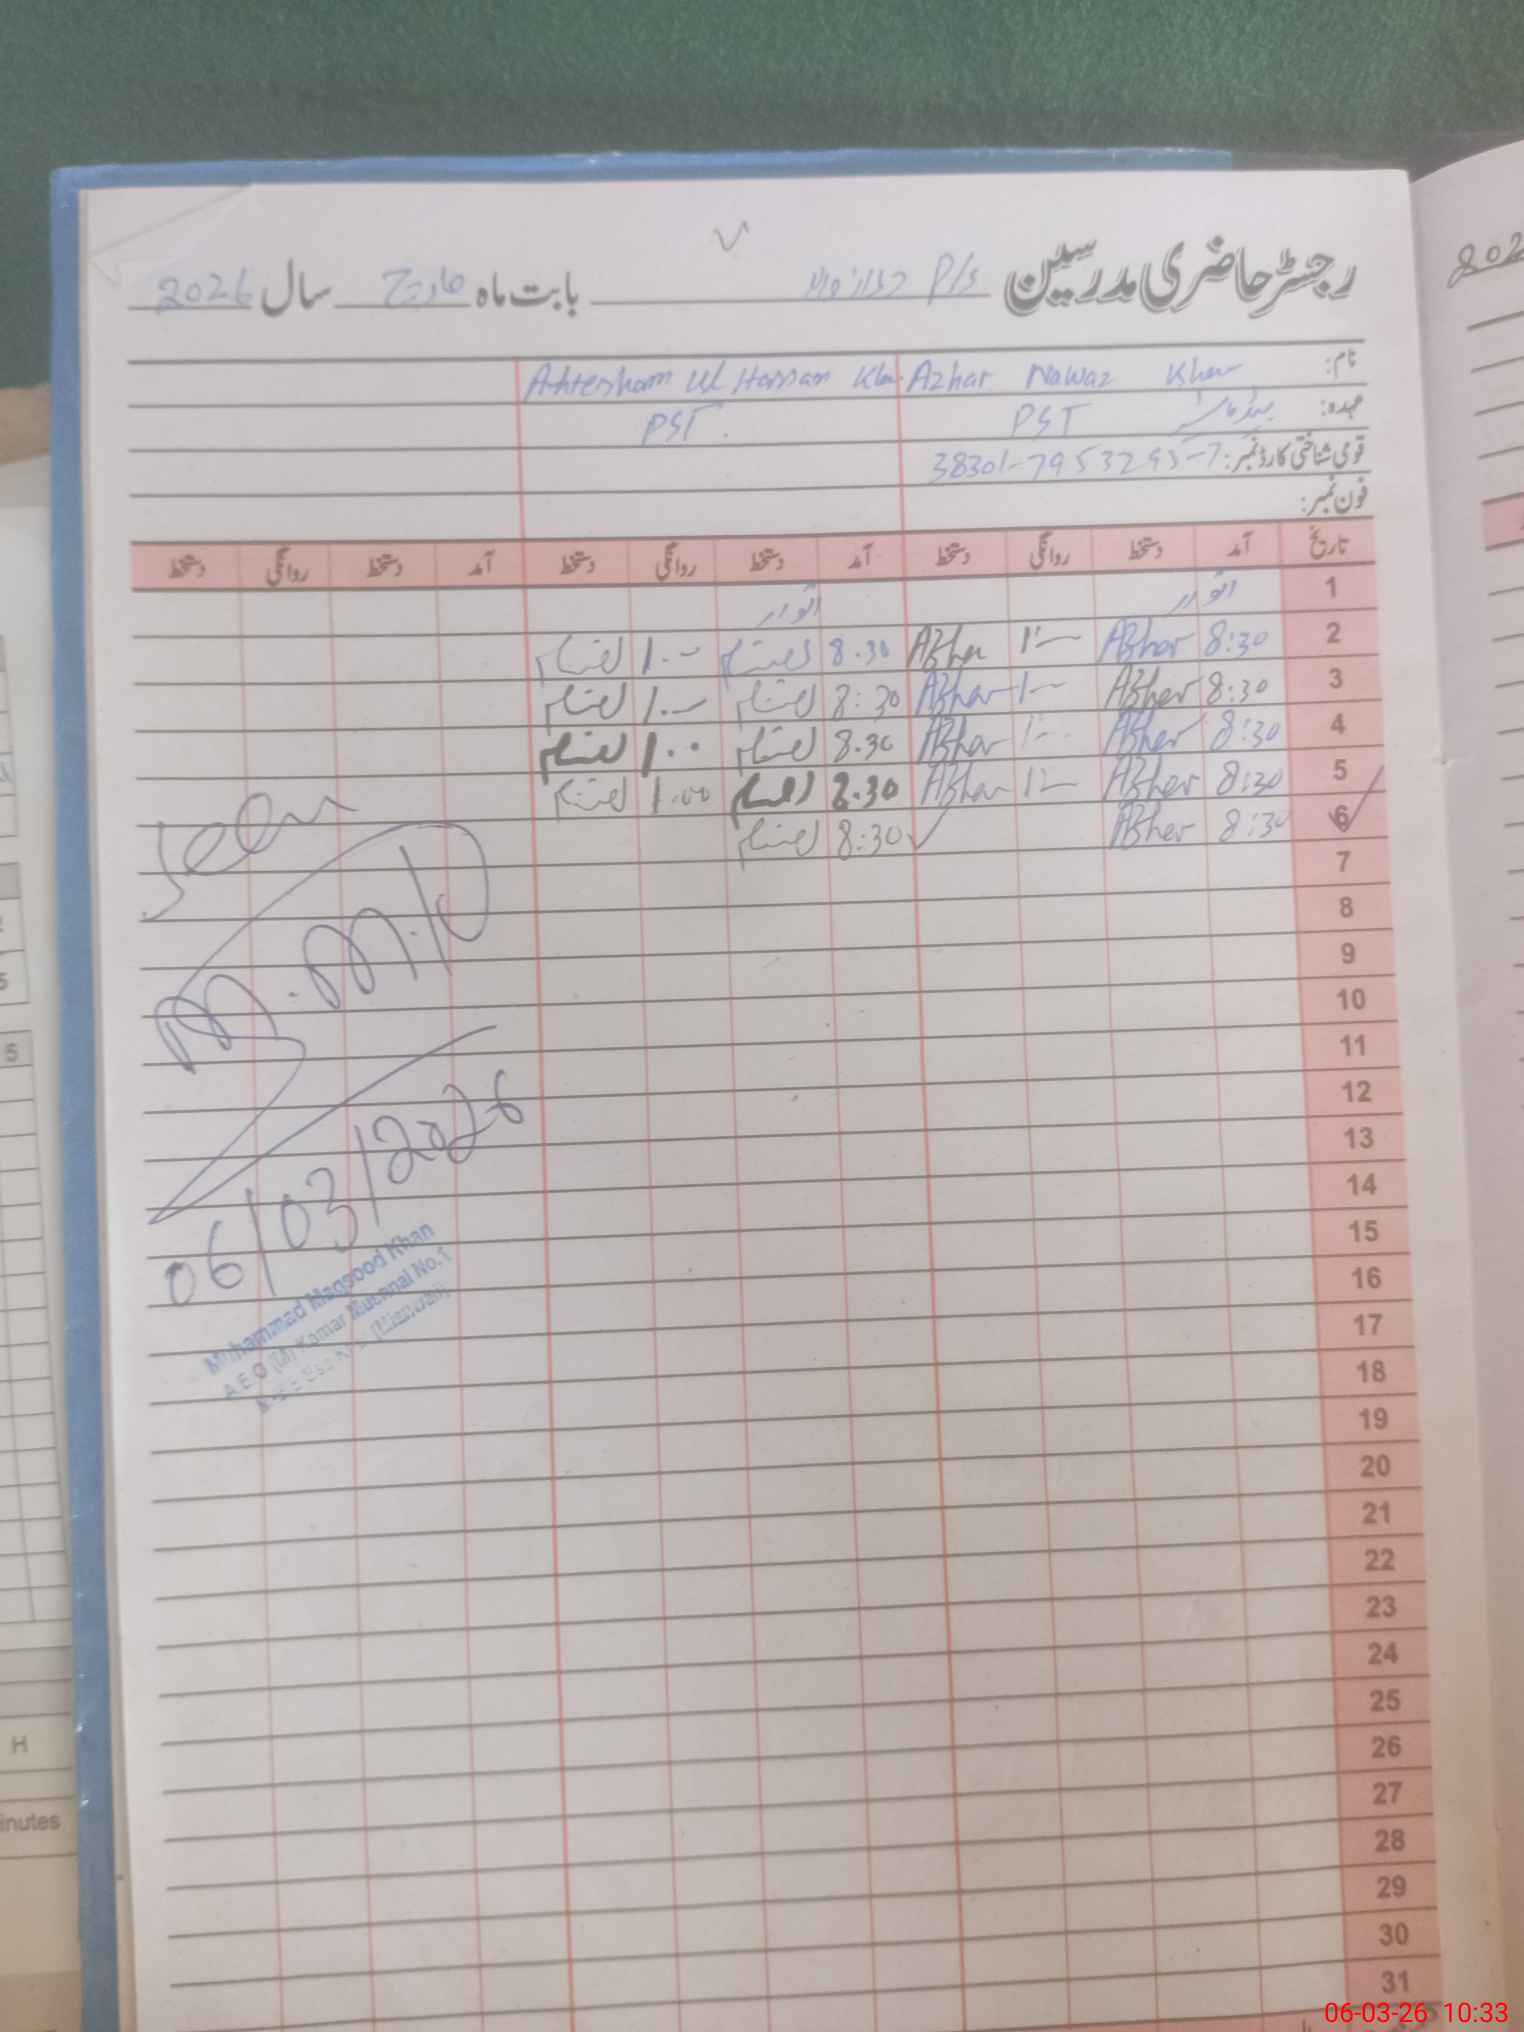 رجسٹر حاضری مدرسین P/S بابت ماہ مارچ سال 2026
نام: Azhar Nawaz Khan Ahtesham Ul Hassan Khan
عہدہ: PST PST
قومی شناختی کارڈ نمبر: 38301-7953295-7
فون نمبر:
تاریخ آمد دستخط روانگی دستخط آمد دستخط روانگی دستخط آمد دستخط روانگی دستخط
1 اتوار اتوار
2 8:30 Azhar 1:— Azhar 8.30 احتشام 1.— احتشام
3 8:30 Azhar 1:— Azhar 8:30 احتشام 1.— احتشام
4 8:30 Azhar 1:— Azhar 8.30 احتشام 1.00 احتشام
5 8:30 Azhar 1:— Azhar 8.30 احتشام 1.00 احتشام
6 8:30 Azhar 8:30 احتشام
7
8
9
10
11
12
13
14
15
16
17
18
19
20
21
22
23
24
25
26
27
28
29
30
31
Seen
06/03/2026
Muhammad Maqsood Khan
A.E.O (M) Kamar Mushnai No.1
(Mianwali)
202
5
5
H
inutes
06-03-26 10:33